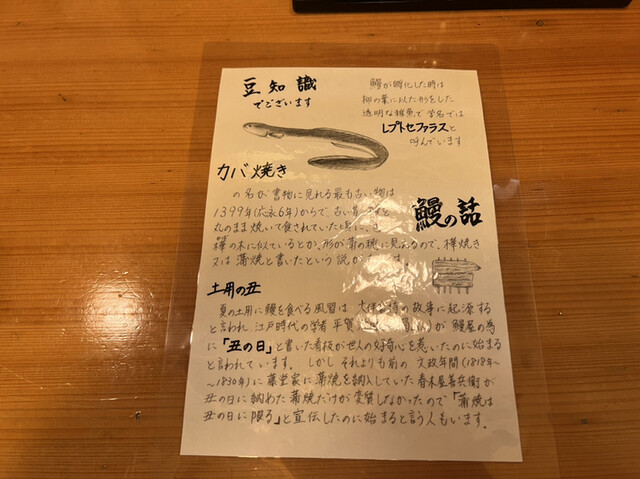 豆知識
でございます
鰻が孵化した時は
柳の葉に似た形をした
透明な稚魚で学名では
レプトセファラスと
呼んでいます
カバ焼き
の名が書物に見れる最も古い物は
1399年(応永6年)からで、古い昔
鰻の話
丸のまま焼いて食されていた頃に、
樺の木に似ているとか、形が蒲の穂に見えるので、樺焼き
又は蒲焼と書いたという説が
土用の丑
夏の土用に鰻を食べる風習は の故事に起源する
と言われ 江戸時代の学者 平賀 が 鰻屋の為
に「丑の日」と書いた看板が世人の好奇心を惹いたのに始まる
と言われています。しかし それよりも前の 文政年間(1818年〜
〜1830年)に 藤堂家に蒲焼を納入していた 春木屋善兵衛が
丑の日に納めた蒲焼だけが変質しなかったので「蒲焼は
丑の日に限る」と宣伝したのに始まると言う人もいます。